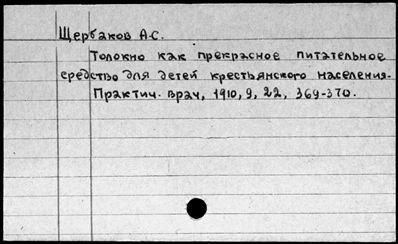 Щербаков А.С.
Толокно как прекрасное питательное
средство для детей крестьянского населения.
Практич. врач, 1910, 9, 22, 369-370.